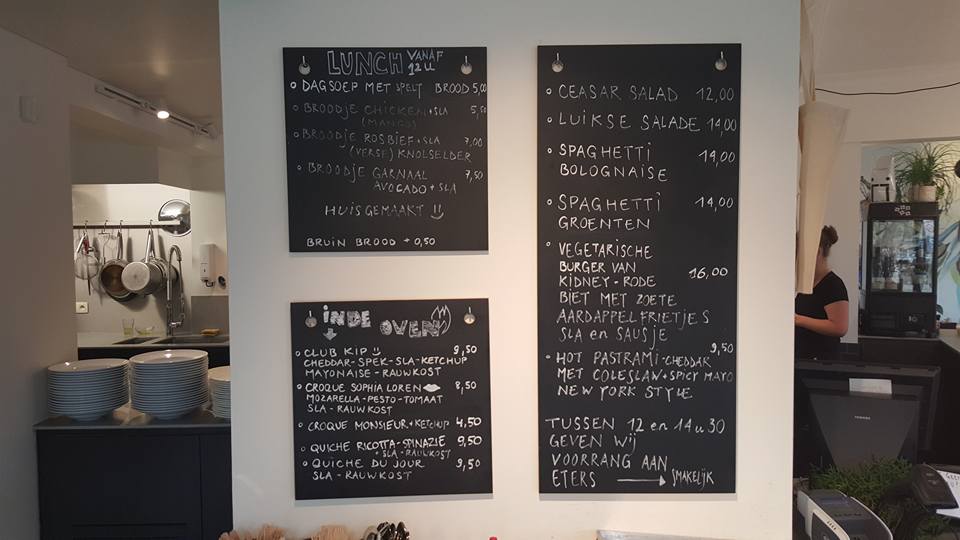 LUNCH VANAF 12u
DAGSOEP MET SPELT BROOD 5,00
BROODJE CHICKEN + SLA 5,50
(MANGO)
BROODJE ROSBIEF + SLA 7,00
(VERSE) KNOLSELDER
BROODJE GARNAAL 7,50
AVOCADO + SLA
HUISGEMAAKT
BRUIN BROOD + 0,50
INDE OVEN
CLUB KIP 9,50
CHEDDAR-SPEK-SLA-KETCHUP
MAYONAISE-RAUWKOST
CROQUE SOPHIA LOREN 8,50
MOZARELLA-PESTO-TOMAAT
SLA-RAUWKOST
CROQUE MONSIEUR + KETCHUP 4,50
QUICHE RICOTTA-SPINAZIE 9,50
+ SLA-RAUWKOST
QUICHE DU JOUR 9,50
SLA-RAUWKOST
CEASAR SALAD 12,00
LUIKSE SALADE 14,00
SPAGHETTI 14,00
BOLOGNAISE
SPAGHETTI 14,00
GROENTEN
VEGETARISCHE
BURGER VAN
KIDNEY-RODE 16,00
BIET MET ZOETE
AARDAPPELFRIETJES
SLA en SAUSJE
9,50
HOT PASTRAMI-CHEDDAR
MET COLESLAW + SPICY MAYO
NEW YORK STYLE
TUSSEN 12 en 14u30
GEVEN WIJ
VOORRANG AAN
ETERS → SMAKELIJK
TOSHIBA